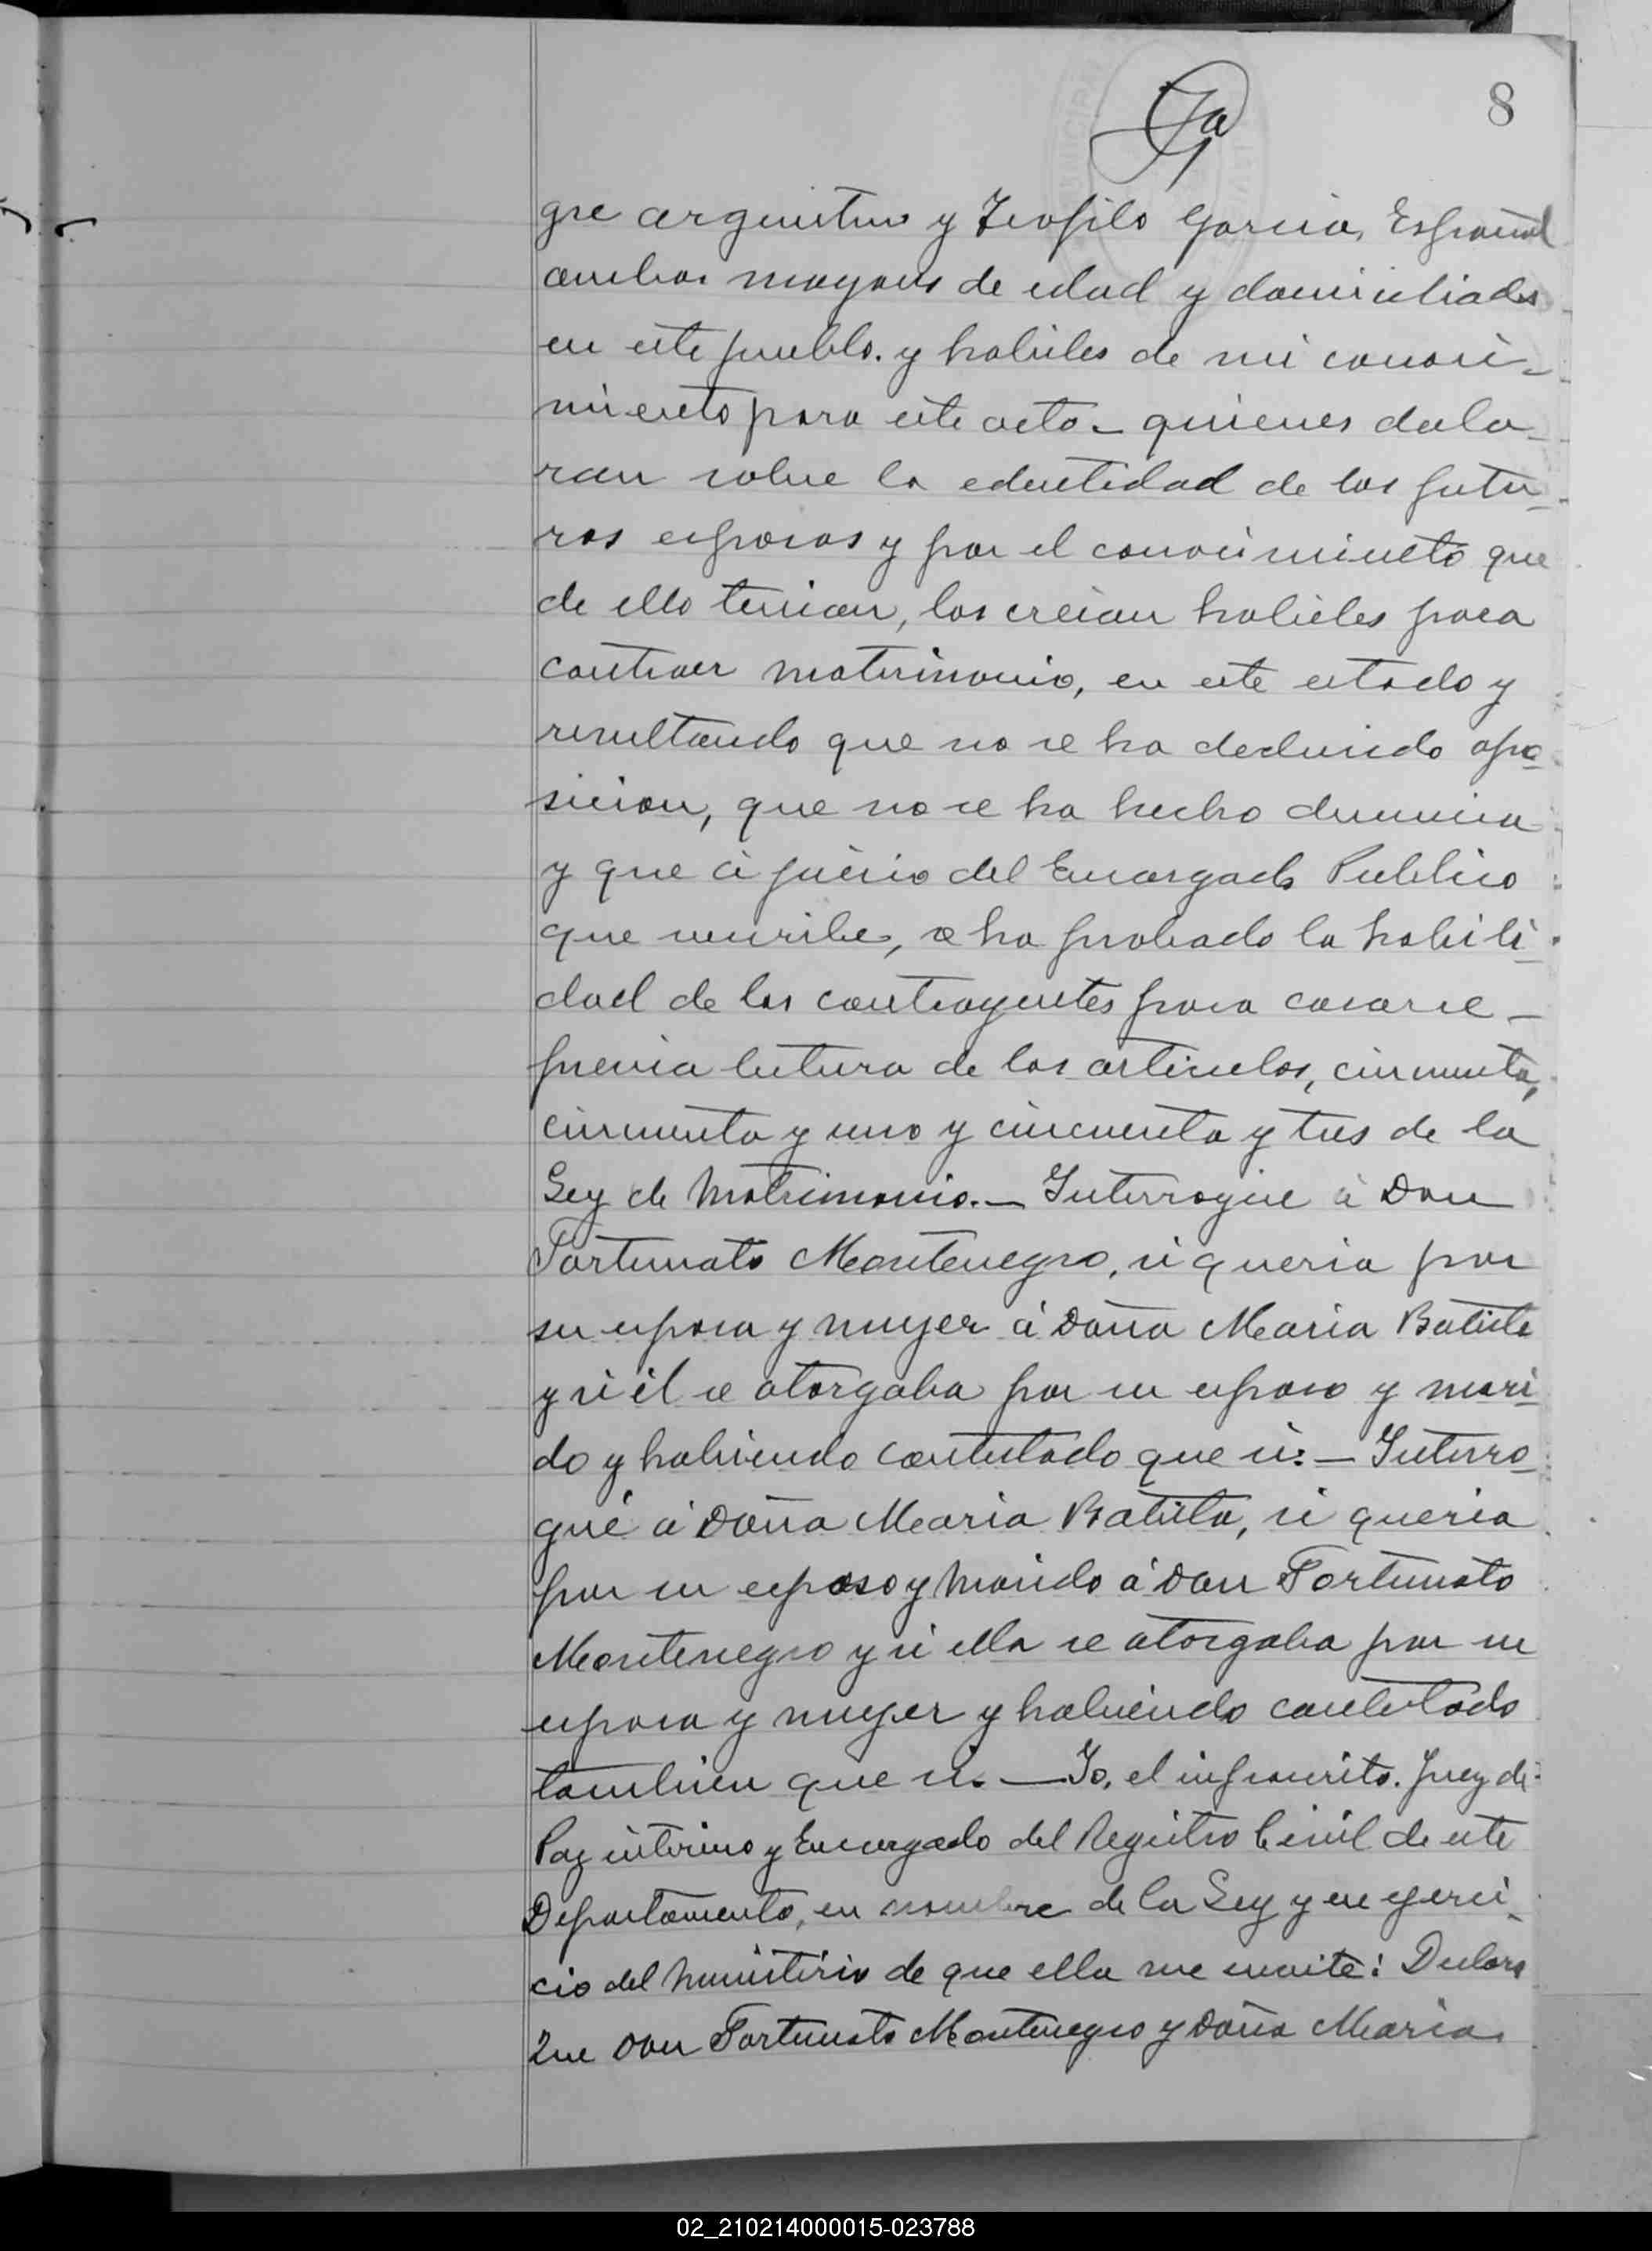 8
gre argentino y Teofilo Garcia, Español
ambos mayores de edad y domiciliados
en este pueblo. y habiles de mi conoci-
miento para este acto - quienes decla-
ran sobre la edentidad de los futu-
ros esposos y por el conocimiento que
de ello tenian, los creian habieles para
contraer matrimonio, en este estado y
resultando que no se ha deducido opo-
sicion, que no se ha hecho denuncia
y que á juicio del Encargado Publico
que suscribe, se ha probado la habili-
dad de los contrayentes para casarse -
previa letura de los articulos, cincuenta,
cincuenta y uno y cincuenta y tres de la
Ley de Matrimonio. - Interrogue á Don
Fortunato Montenegro, si queria por
su esposa y muger á Doña Maria Batista
y si él se otorgaba por su esposo y mari-
do y habiendo contestado que si: - Interro-
gué á Doña Maria Batista, si queria
por su esposo y marido á Don Fortunato
Montenegro y si ella se otorgaba por su
esposa y muger y habiendo contestado
tambien que si. - Yo, el infrascrito. Juez de
Paz interino y Encargado del Registro Civil de este
Departamento, en nombre de la Ley y en egerci-
cio del ministerio de que ella me envite: Declaro
Que Don Fortunato Montenegro y Doña Maria
02_210214000015-023788